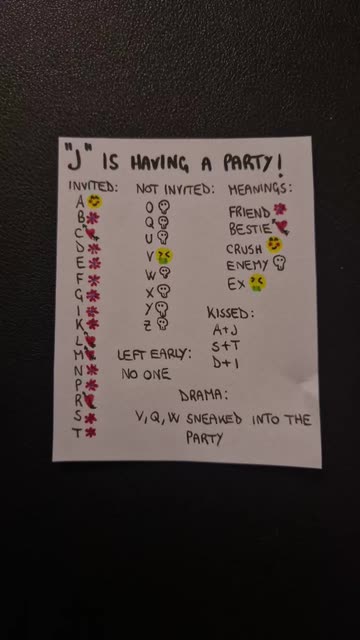 "J" IS HAVING A PARTY!
INVITED:
A
B
C
D
E
F
G
I
K
L
M
N
P
R
S
T
NOT INVITED:
O
Q
U
V
W
X
Y
Z
MEANINGS:
FRIEND
BESTIE
CRUSH
ENEMY
EX
KISSED:
A+J
S+T
D+I
LEFT EARLY:
NO ONE
DRAMA:
V, Q, W SNEAKED INTO THE
PARTY